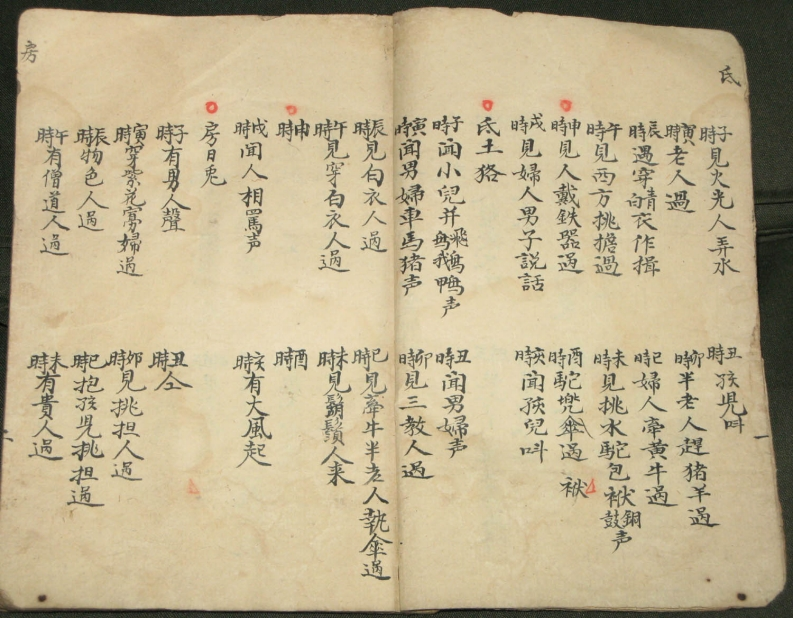 氐
子時見火光人弄水
丑時孩児叫
寅時老人過
卯時半老人趕猪羊過
辰時遇穿青白衣作揖
巳時婦人牽黄牛過
午時見西方挑擔過
未時見挑水駝包袱銅鼓声
申時見人戴鉄器過
酉時駝兠傘過
袱
戌時見婦人男子説話
亥時聞孩兒叫
氐土狢
子時聞小兒并飛鵝鴨声
丑時聞男婦声
寅時聞男婦車馬猪声
卯時見三教人過
辰時見白衣人過
巳時見牽牛半老人執傘過
午時見穿白衣人過
未時見鬍鬚人来
申時
酉時
戌時聞人相罵声
亥時有大風起
房日兎
子時有男人聲
丑時仝
寅時穿紫花寡婦過
卯時見挑担人過
辰時物色人過
巳時抱孩児挑担過
午時有僧道人過
未時有貴人過
房